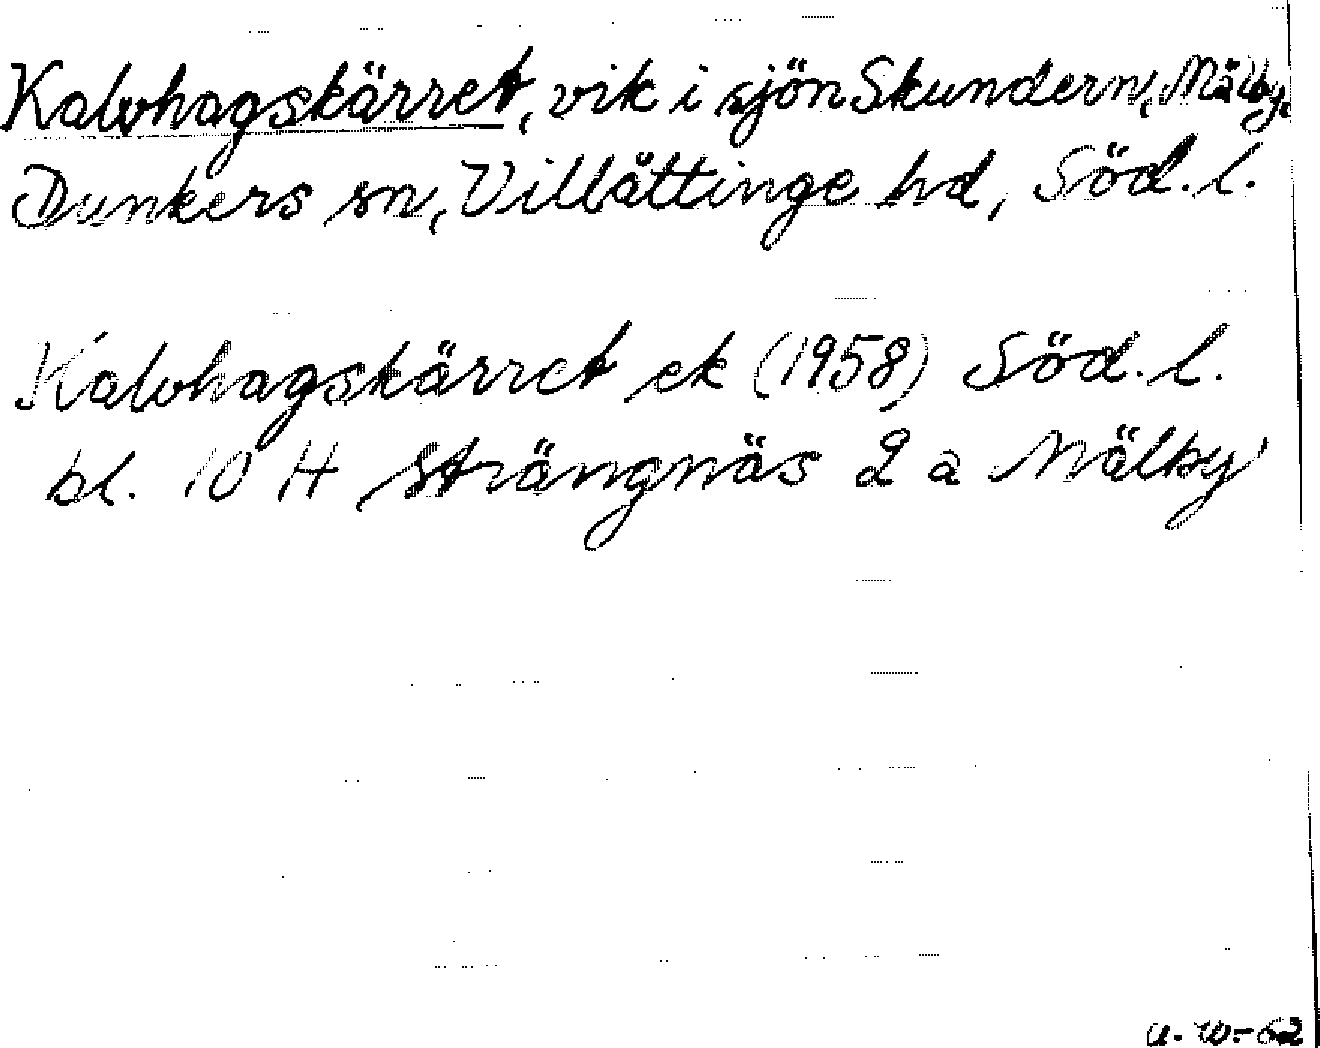 Kalvhagskärret, vik i sjön Skundern, Mälby,
Dunkers sn, Villåttinge hd, Söd. l.
Kalvhagskärret ek (1958) Söd. l.
bl. 10 H Strängnäs 2 a Mälby
U. W-62